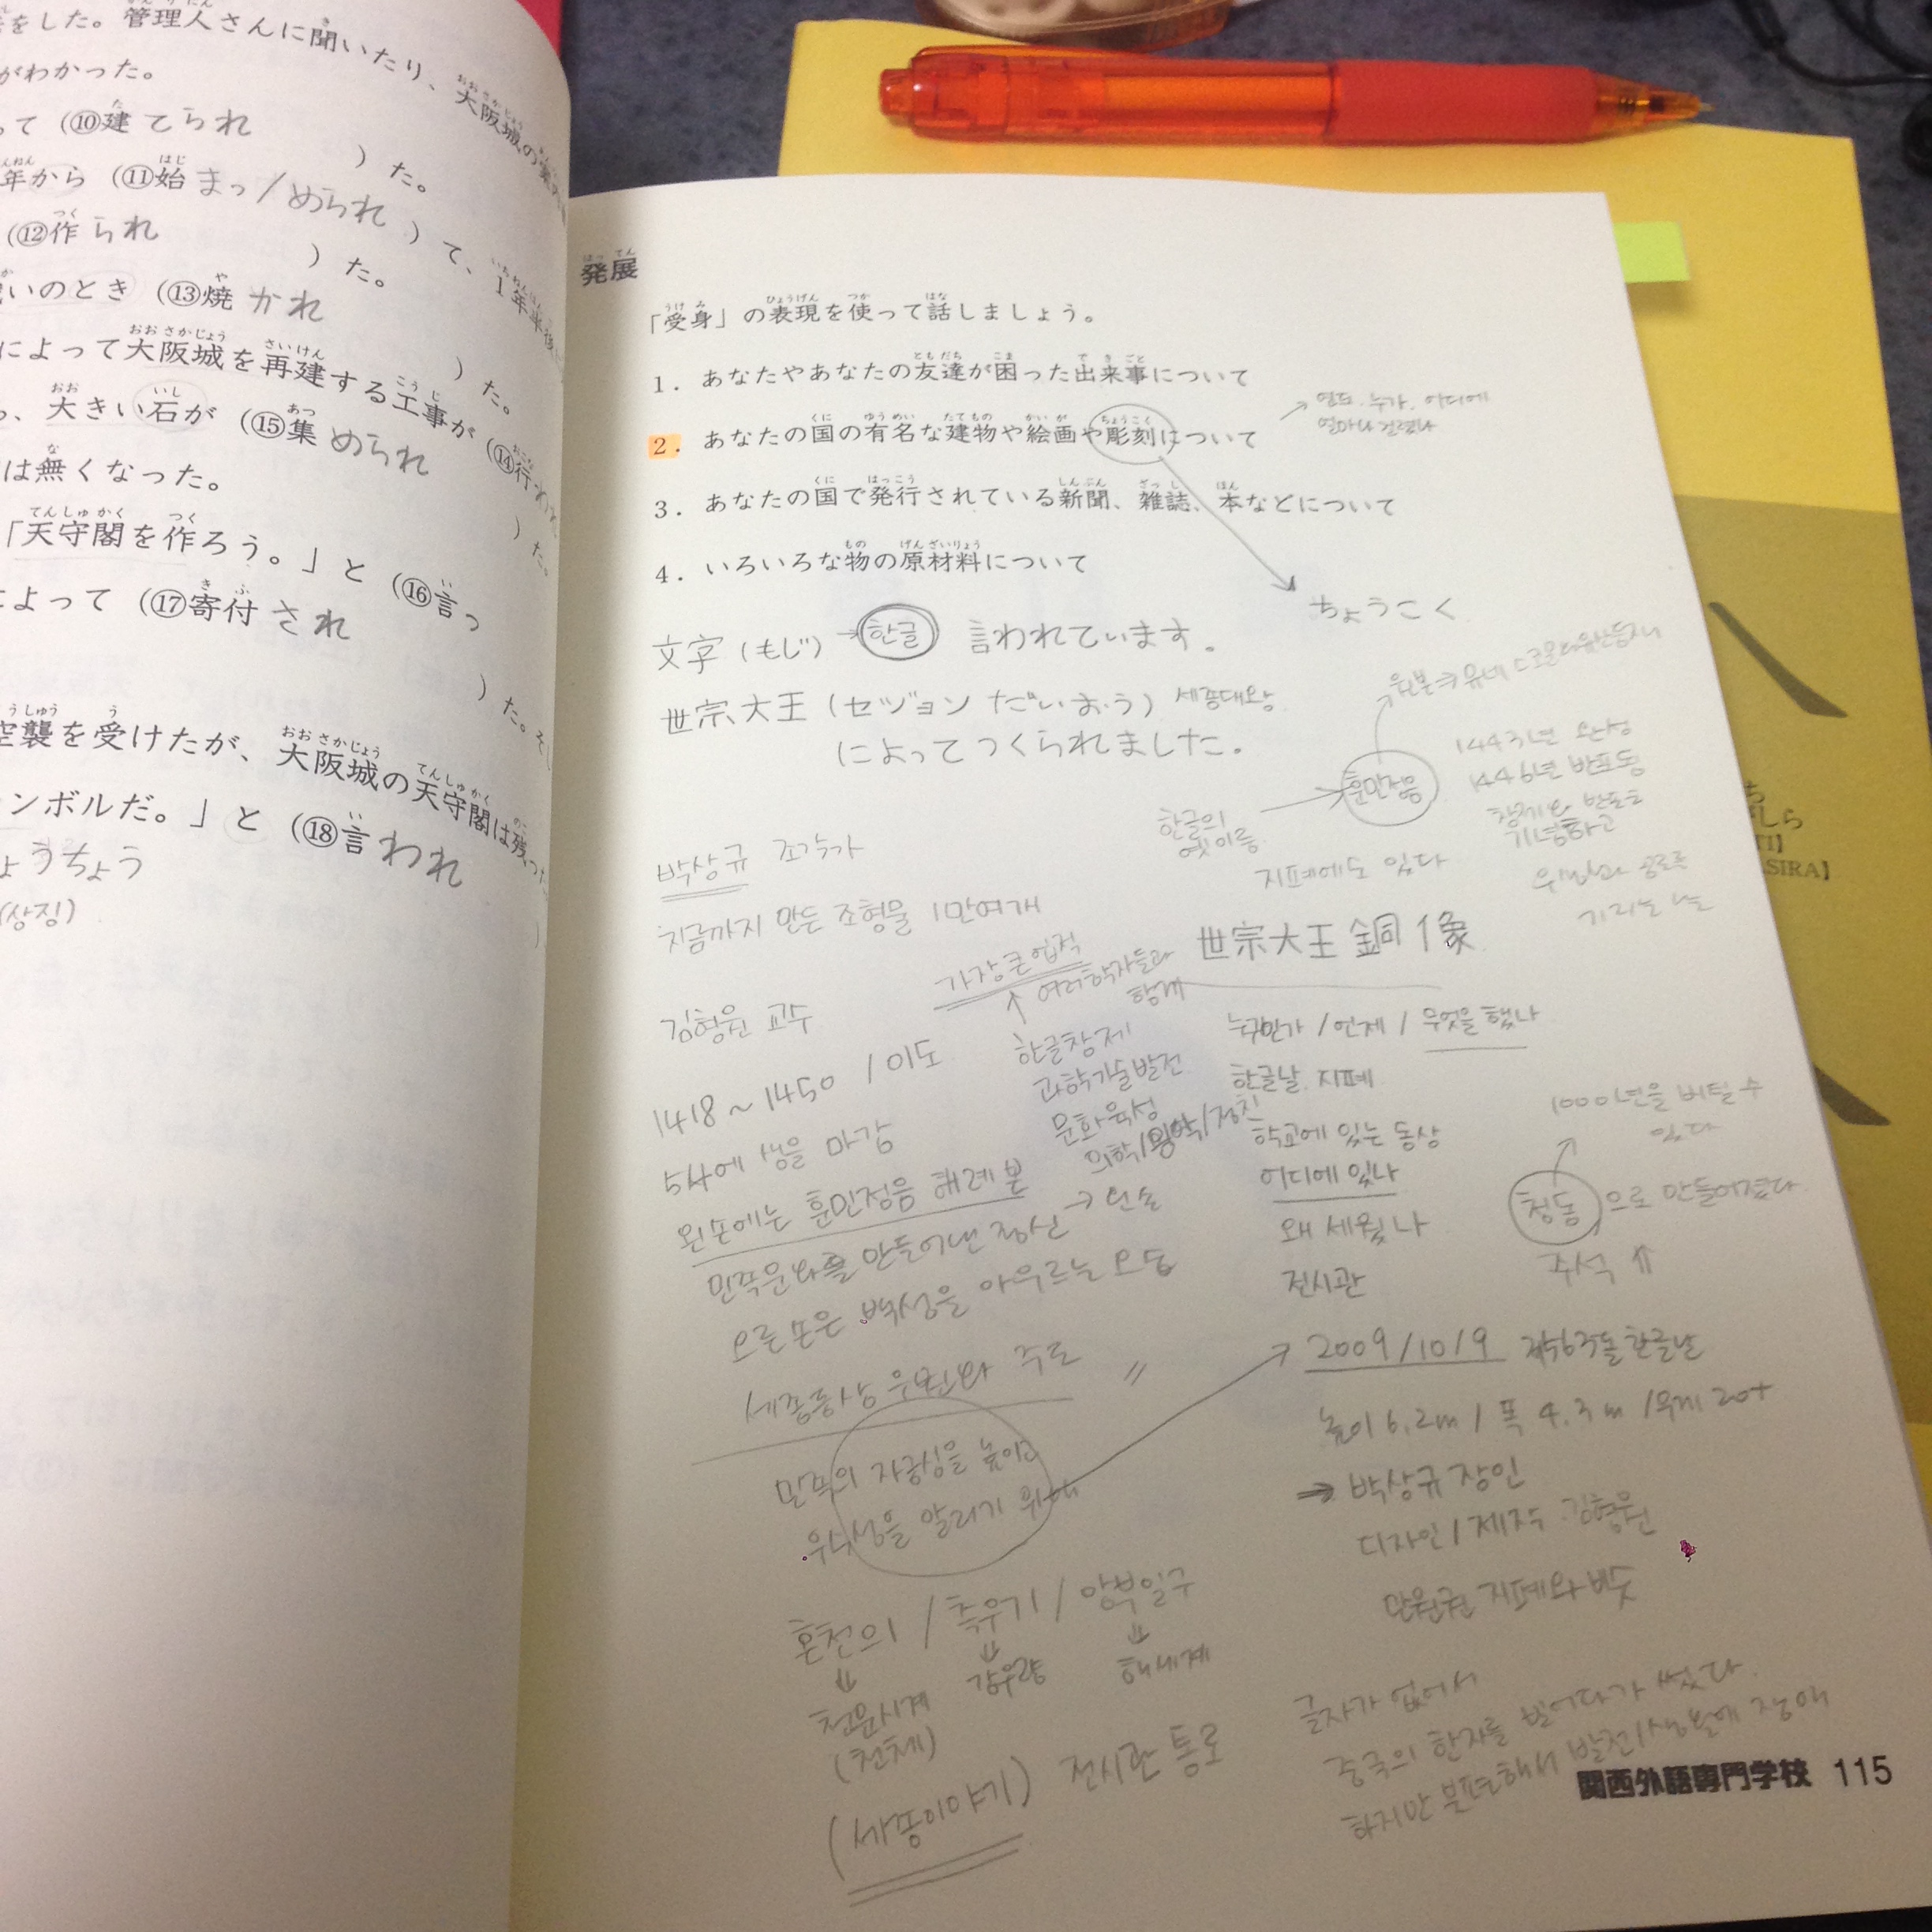 をした。管理人さんに聞いたり、大阪城の
がわかった。
って (⑩建てられ ) た。
年から (⑪始まっ/められ ) て、1年半後に
(⑫作られ ) た。
いのとき (⑬焼かれ ) た。
によって大阪城を再建する工事が (⑭行われ
、大きい石が (⑮集められ ) た。
は無くなった。
「天守閣を作ろう。」と (⑯言っ ) た。
によって (⑰寄付され ) た。そし
空襲を受けたが、大阪城の天守閣は残った
ンボルだ。」と (⑱言われ )
ょうちょう
(상징)
発展
「受身」の表現を使って話しましょう。
1. あなたやあなたの友達が困った出来事について
2. あなたの国の有名な建物や絵画や彫刻について
3. あなたの国で発行されている新聞、雑誌、本などについて
4. いろいろな物の原材料について
누가. 어디에
얼마나 걸렸나
ちょうこく
文字 (もじ) → 한글 言われています。
世宗大王 (セジョン だいおう) 세종대왕
によってつくられました。
한글의
옛이름
훈민정음
1443년 완성
1446년 반포
지폐에도 있다
기리는 날
박상규 조각가
지금까지 만든 조형물 1만여개
世宗大王 銅像
가장 큰 업적
여러학자들과
함께
김형원 교수
1418~1450 / 이도
한글창제
과학기술발전
문화육성
의학/음악/정치
54에 생을 마감
왼손에는 훈민정음 해례본
민족문화를 만들어낸 정신 → 왼손
오른손은 백성을 아우르는 모습
누구인가 / 언제 / 무엇을 했나
한글날 지폐
학교에 있는 동상
어디에 있나
왜 세웠나
전시관
1000년을 버틸 수
있다
청동으로 만들어졌다
주석 ⇑
민족의 자긍심을 높이고
우수성을 알리기 위해
2009/10/9 제563돌 한글날
높이 6.2m / 폭 4.3m / 무게 20t
⇒ 박상규 장인
디자인 / 제작 김형원
만원권 지폐와 비슷
혼천의 / 측우기 / 앙부일구
천문시계 강우량 해시계
(천체)
(세종이야기) 전시관 통로
글자가 없어서
중국의 한자를 빌어다가 썼다.
하지만 불편해서 발전/생활에 장애
関西外語専門学校 115